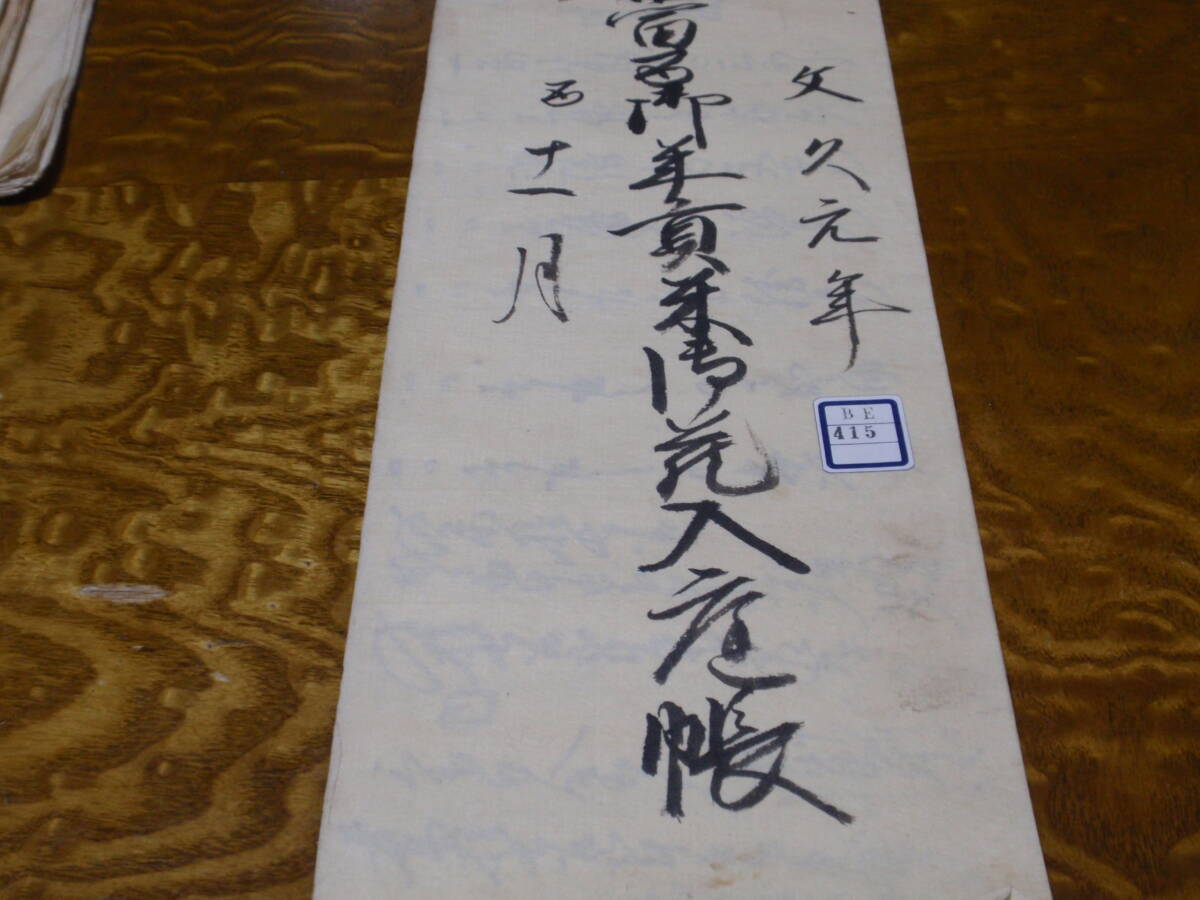 文久元年
當酉御年貢米御蔵入庭帳
酉十一月
BE
415